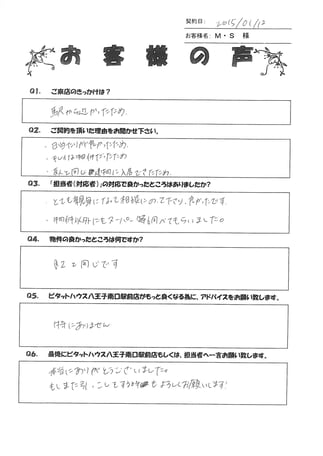 契約日: 2015/01/12
お客様名: M・S 様
お客様の声
Q1. ご来店のきっかけは?
駅から近かったため
Q2. ご契約を頂いた理由をお聞かせ下さい。
・日当たりが良かったため
・もしくは 物件だったため
・友人と同じ 物に入居できたため
Q3. 「担当者(対応者)」の対応で良かったところはありましたか?
・とても親身になって相談にのって下さり、良かったです。
・物件以外にもスーパー 等も調べてもらいました。
Q4. 物件の良かったところは何ですか?
Q2と同じです
Q5. ピタットハウス八王子南口駅前店がもっと良くなる為に、アドバイスをお願い致します。
特にありません
Q6. 最後にピタットハウス八王子南口駅前店もしくは、担当者へ一言お願い致します。
本当にありがとうございました。
もしまた引っこしをする時もよろしくお願いします!